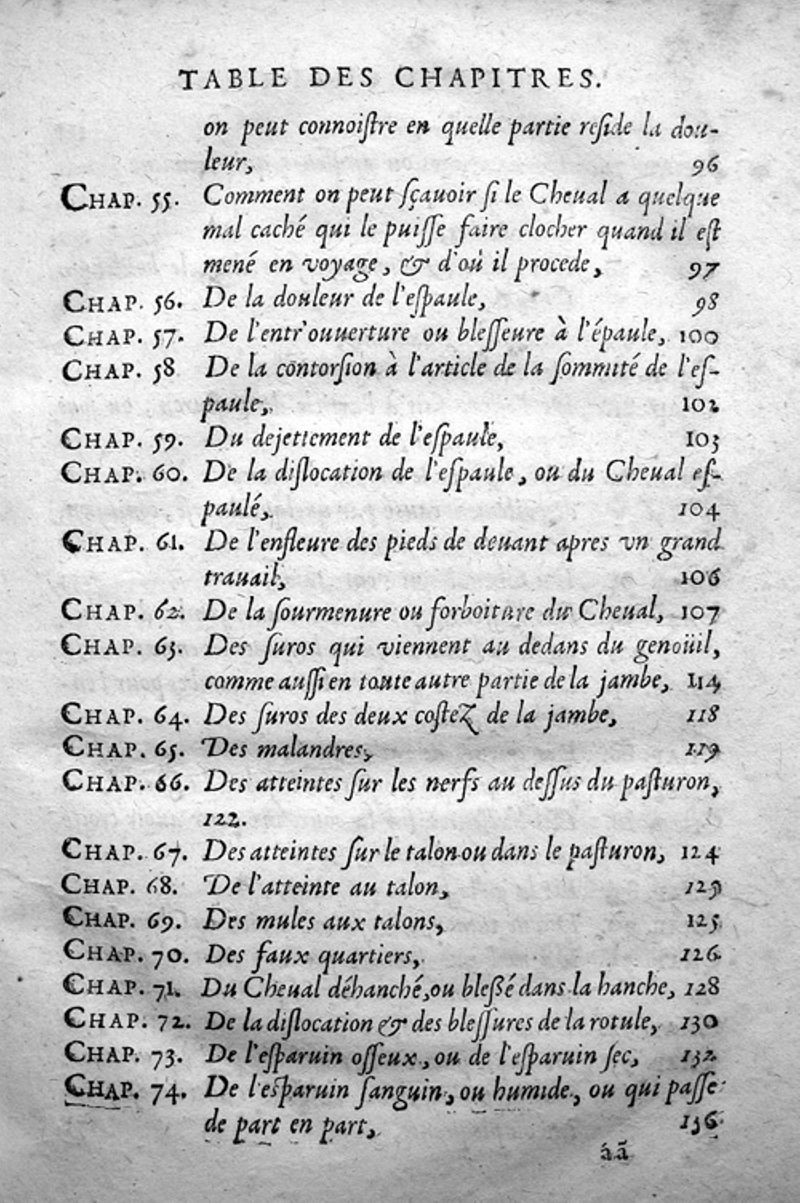 TABLE DES CHAPITRES.
on peut connoiſtre en quelle partie reſide la dou-
leur, 96
CHAP. 55. Comment on peut ſçauoir ſi le Cheual a quelque
mal caché qui le puiſſe faire clocher quand il eſt
mené en voyage, & d'où il procede, 97
CHAP. 56. De la douleur de l'eſpaule, 98
CHAP. 57. De l'entr'ouuerture ou bleſſeure à l'épaule, 100
CHAP. 58 De la contorſion à l'article de la ſommité de l'eſ-
paule, 102
CHAP. 59. Du dejettement de l'eſpaule, 103
CHAP. 60. De la diſlocation de l'eſpaule, ou du Cheual eſ-
paulé, 104
CHAP. 61. De l'enfleure des pieds de deuant apres vn grand
trauail, 106
CHAP. 62. De la ſourmenure ou forboiture du Cheual, 107
CHAP. 63. Des ſuros qui viennent au dedans du genoüil,
comme auſſi en toute autre partie de la jambe, 114
CHAP. 64. Des ſuros des deux coſtez de la jambe, 118
CHAP. 65. Des malandres, 119
CHAP. 66. Des atteintes ſur les nerfs au deſſus du paſturon,
122.
CHAP. 67. Des atteintes ſur le talon ou dans le paſturon, 124
CHAP. 68. De l'atteinte au talon,
CHAP. 69. Des mules aux talons, 125
CHAP. 70. Des faux quartiers, 126
CHAP. 71. Du Cheual déhanché, ou bleßé dans la hanche, 128
CHAP. 72. De la diſlocation & des bleſſures de la rotule, 130
CHAP. 73. De l'eſparuin oſſeux, ou de l'eſparuin ſec, 132
CHAP. 74. De l'eſparuin ſanguin, ou humide, ou qui paſſe
de part en part, 136
áã